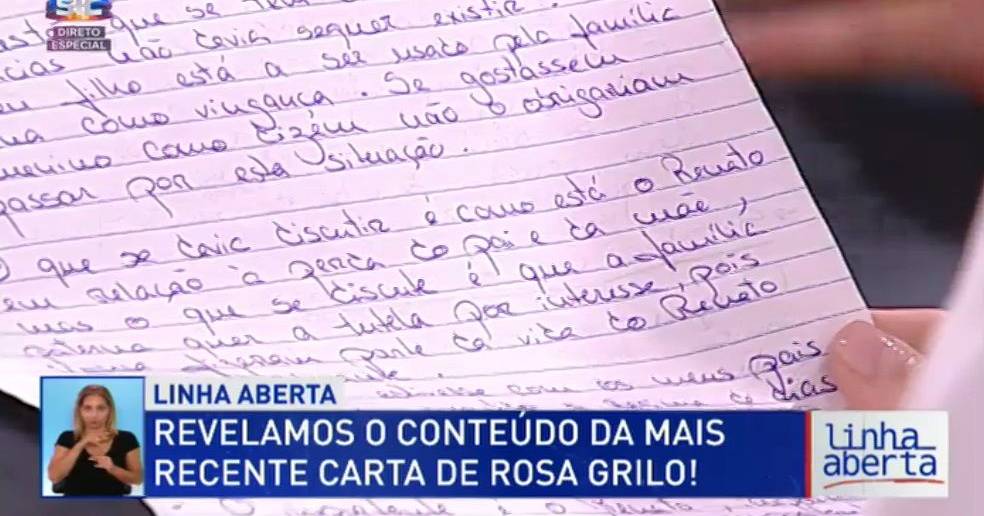 SIC
DIRETO
ESPECIAL
que se
não devia sequer existir.
filho está a ser usado pela família
como vingança. Se gostassem
menino como dizem não o obrigariam
passar por esta situação.
O que se devia discutir é como está o Renato
em relação à perda do pai e da mãe,
mas o que se discute é que a família
paterna quer a tutela por interesse, pois
parte da vida do Renato
com os meus pais
dias
LINHA ABERTA
REVELAMOS O CONTEÚDO DA MAIS
RECENTE CARTA DE ROSA GRILO!
linha
aberta